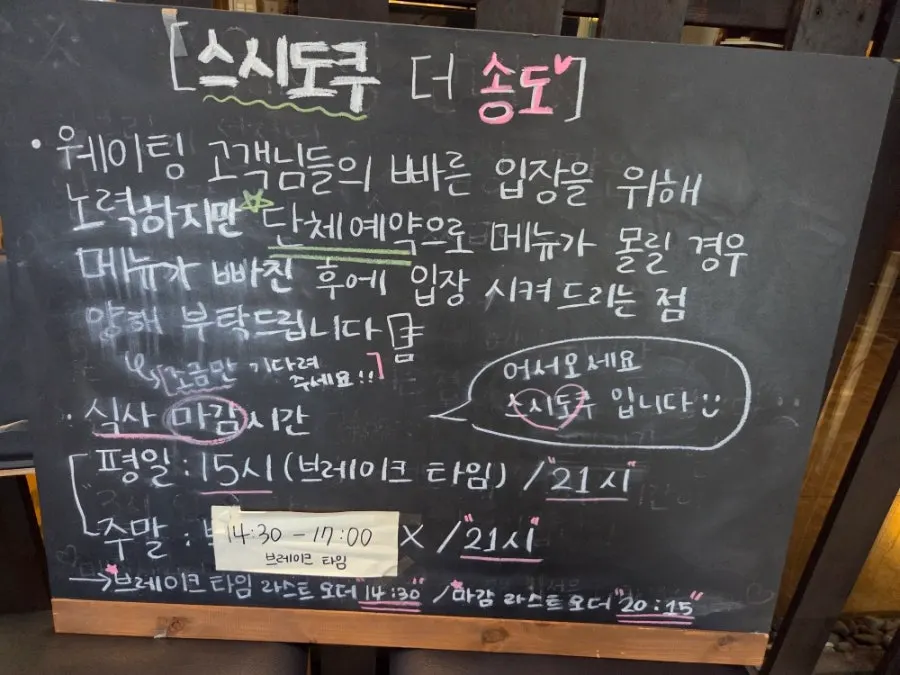 [스시도쿠 더 송도]
• 웨이팅 고객님들의 빠른 입장을 위해
노력하지만 단체예약으로 메뉴가 몰릴 경우
메뉴가 빠진 후에 입장 시켜드리는 점
양해 부탁드립니다
조금만 기다려
주세요!!
어서오세요
스시도쿠 입니다
· 식사 마감시간
평일 : 15시 (브레이크 타임) / "21시"
주말 : 14:30 - 17:00 X / "21시"
브레이크 타임
→ 브레이크 타임 라스트 오더 "14:30" / 마감 라스트 오더 "20:15"